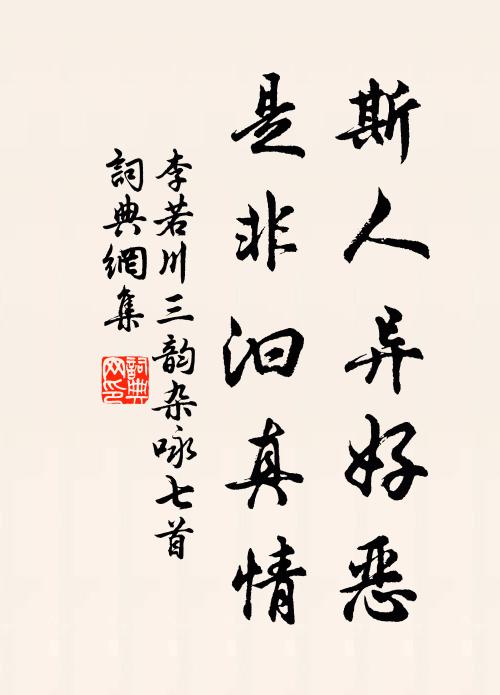 斯人异好恶
是非汩真情
李若川三韵杂咏七首
詞典網集
詞典网印